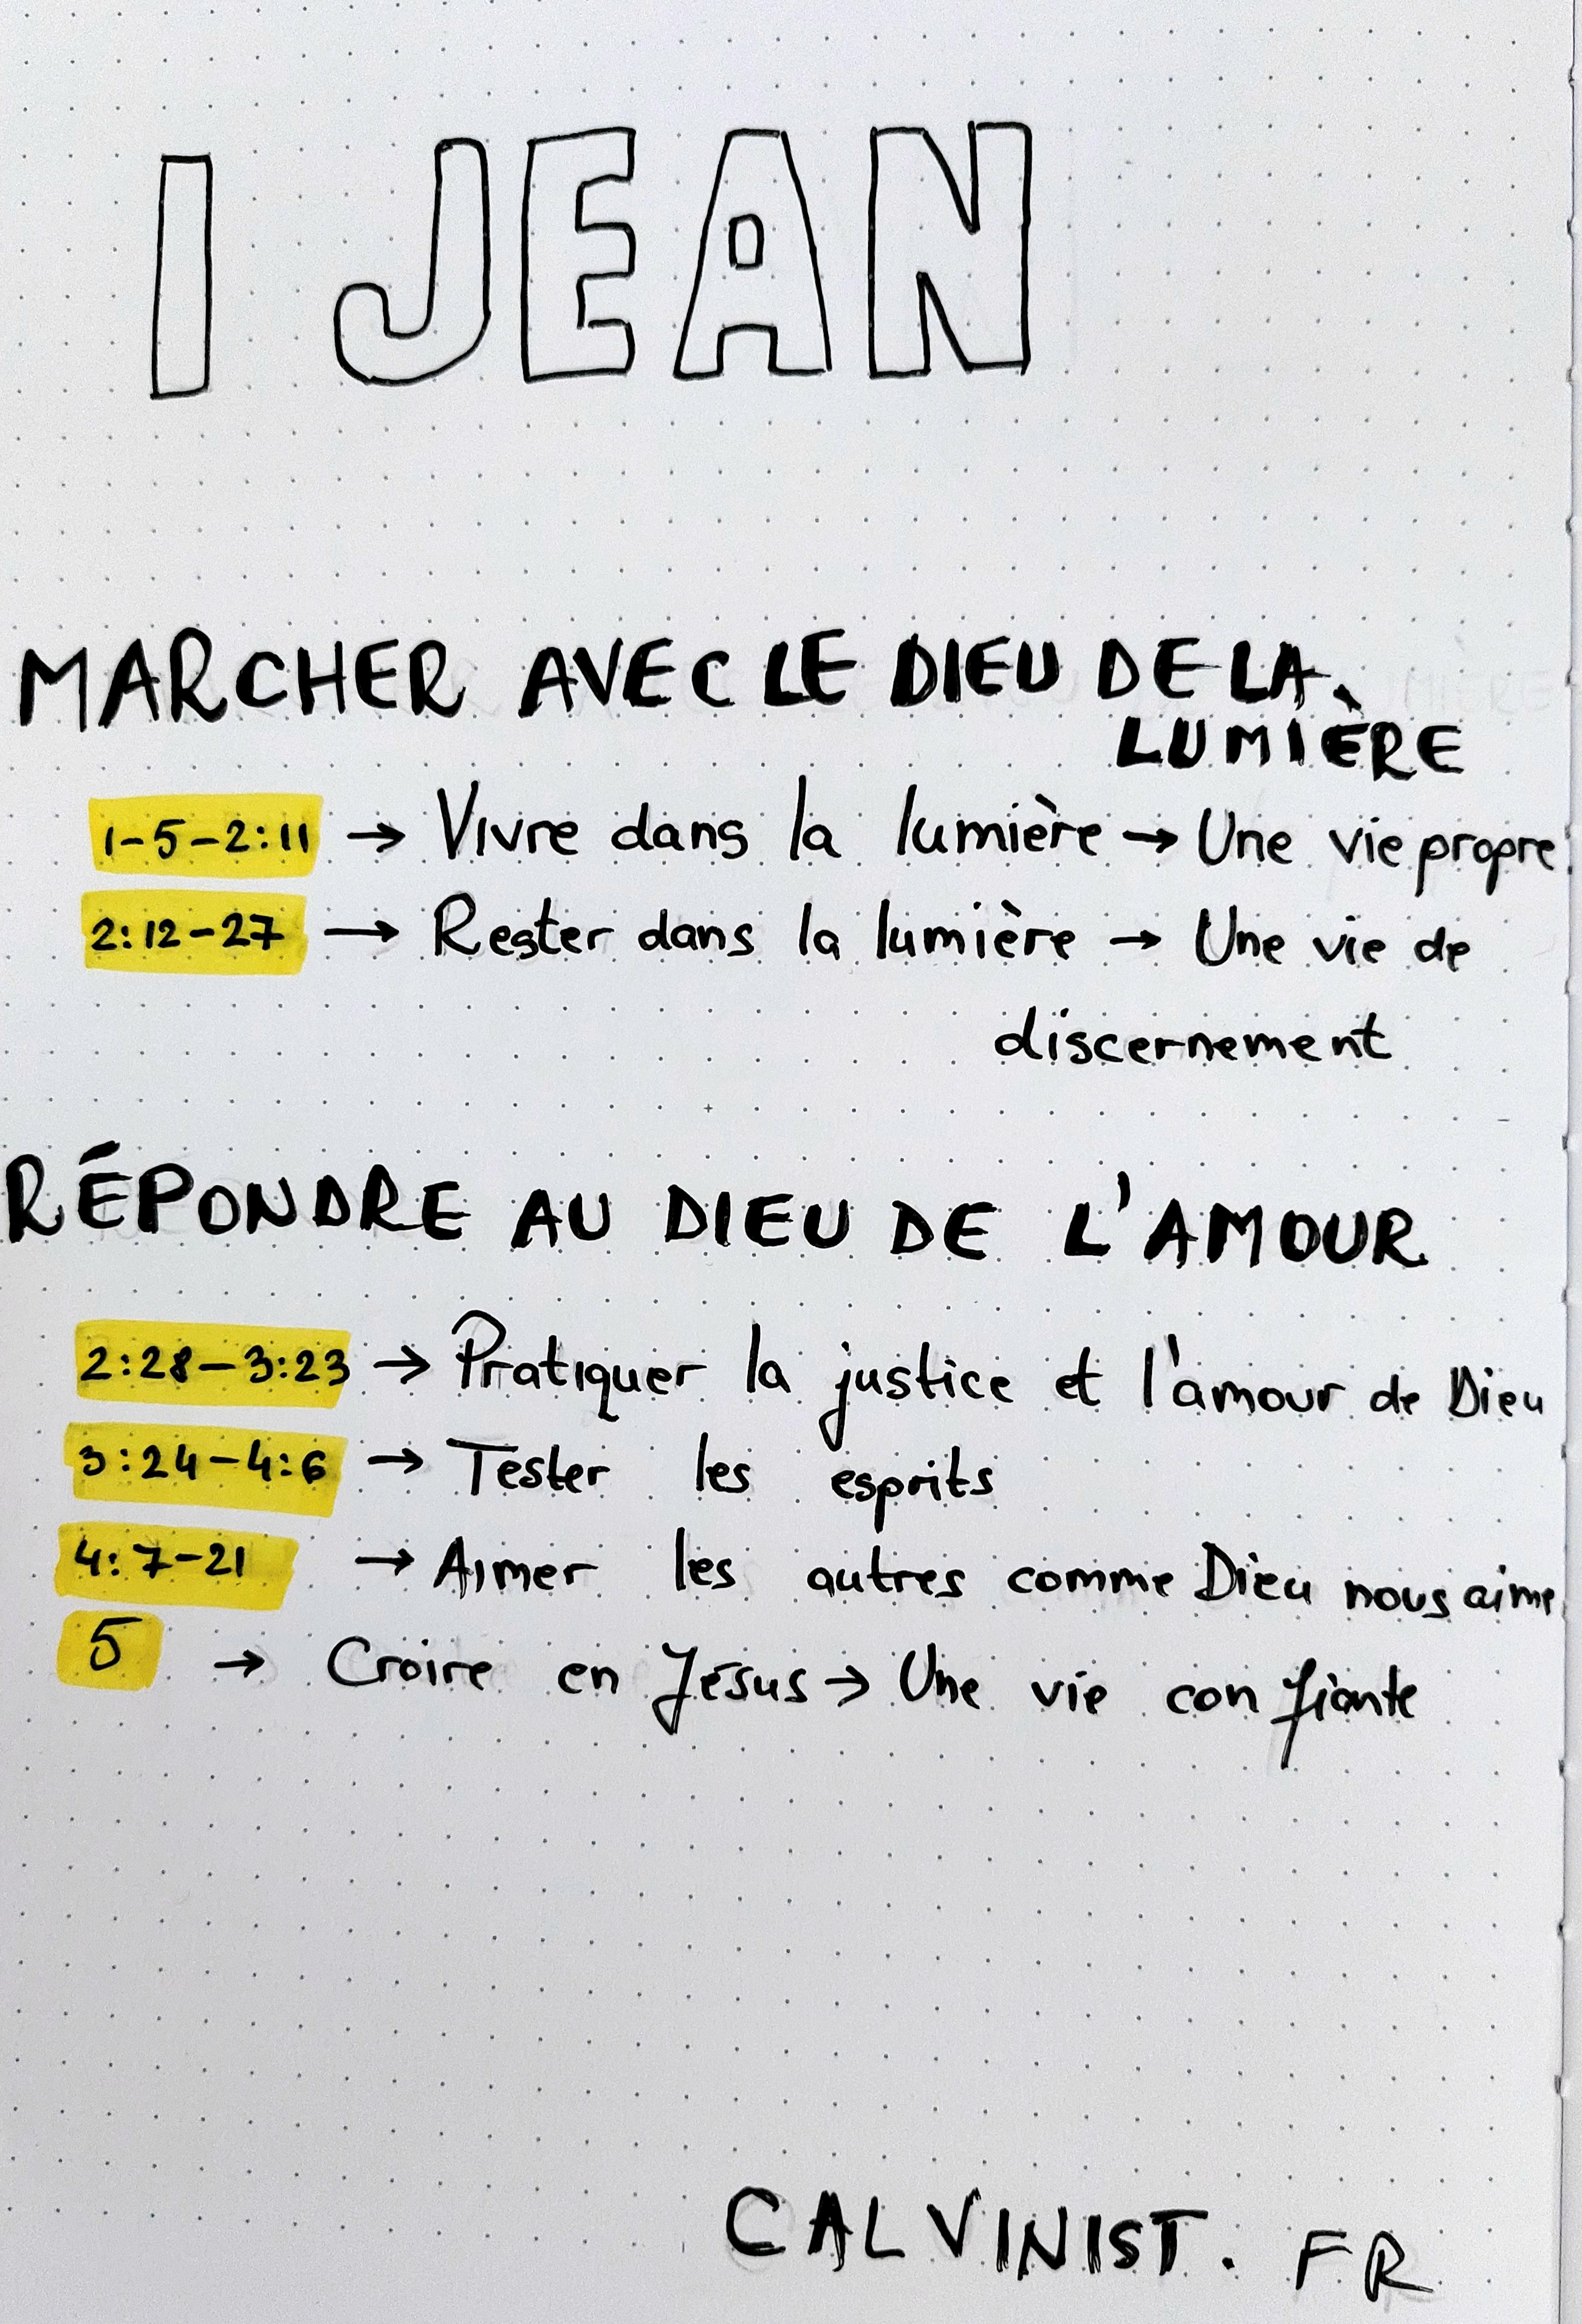 I JEAN
MARCHER AVEC LE DIEU DE LA
LUMIÈRE
1-5-2:11 → Vivre dans la lumière → Une vie propre
2:12-27 → Rester dans la lumière → Une vie de
discernement
RÉPONDRE AU DIEU DE L'AMOUR
2:28-3:23 → Pratiquer la justice et l'amour de Dieu
3:24-4:6 → Tester les esprits
4:7-21 → Aimer les autres comme Dieu nous aime
5 → Croire en Jésus → Une vie confiante
CALVINIST.FR